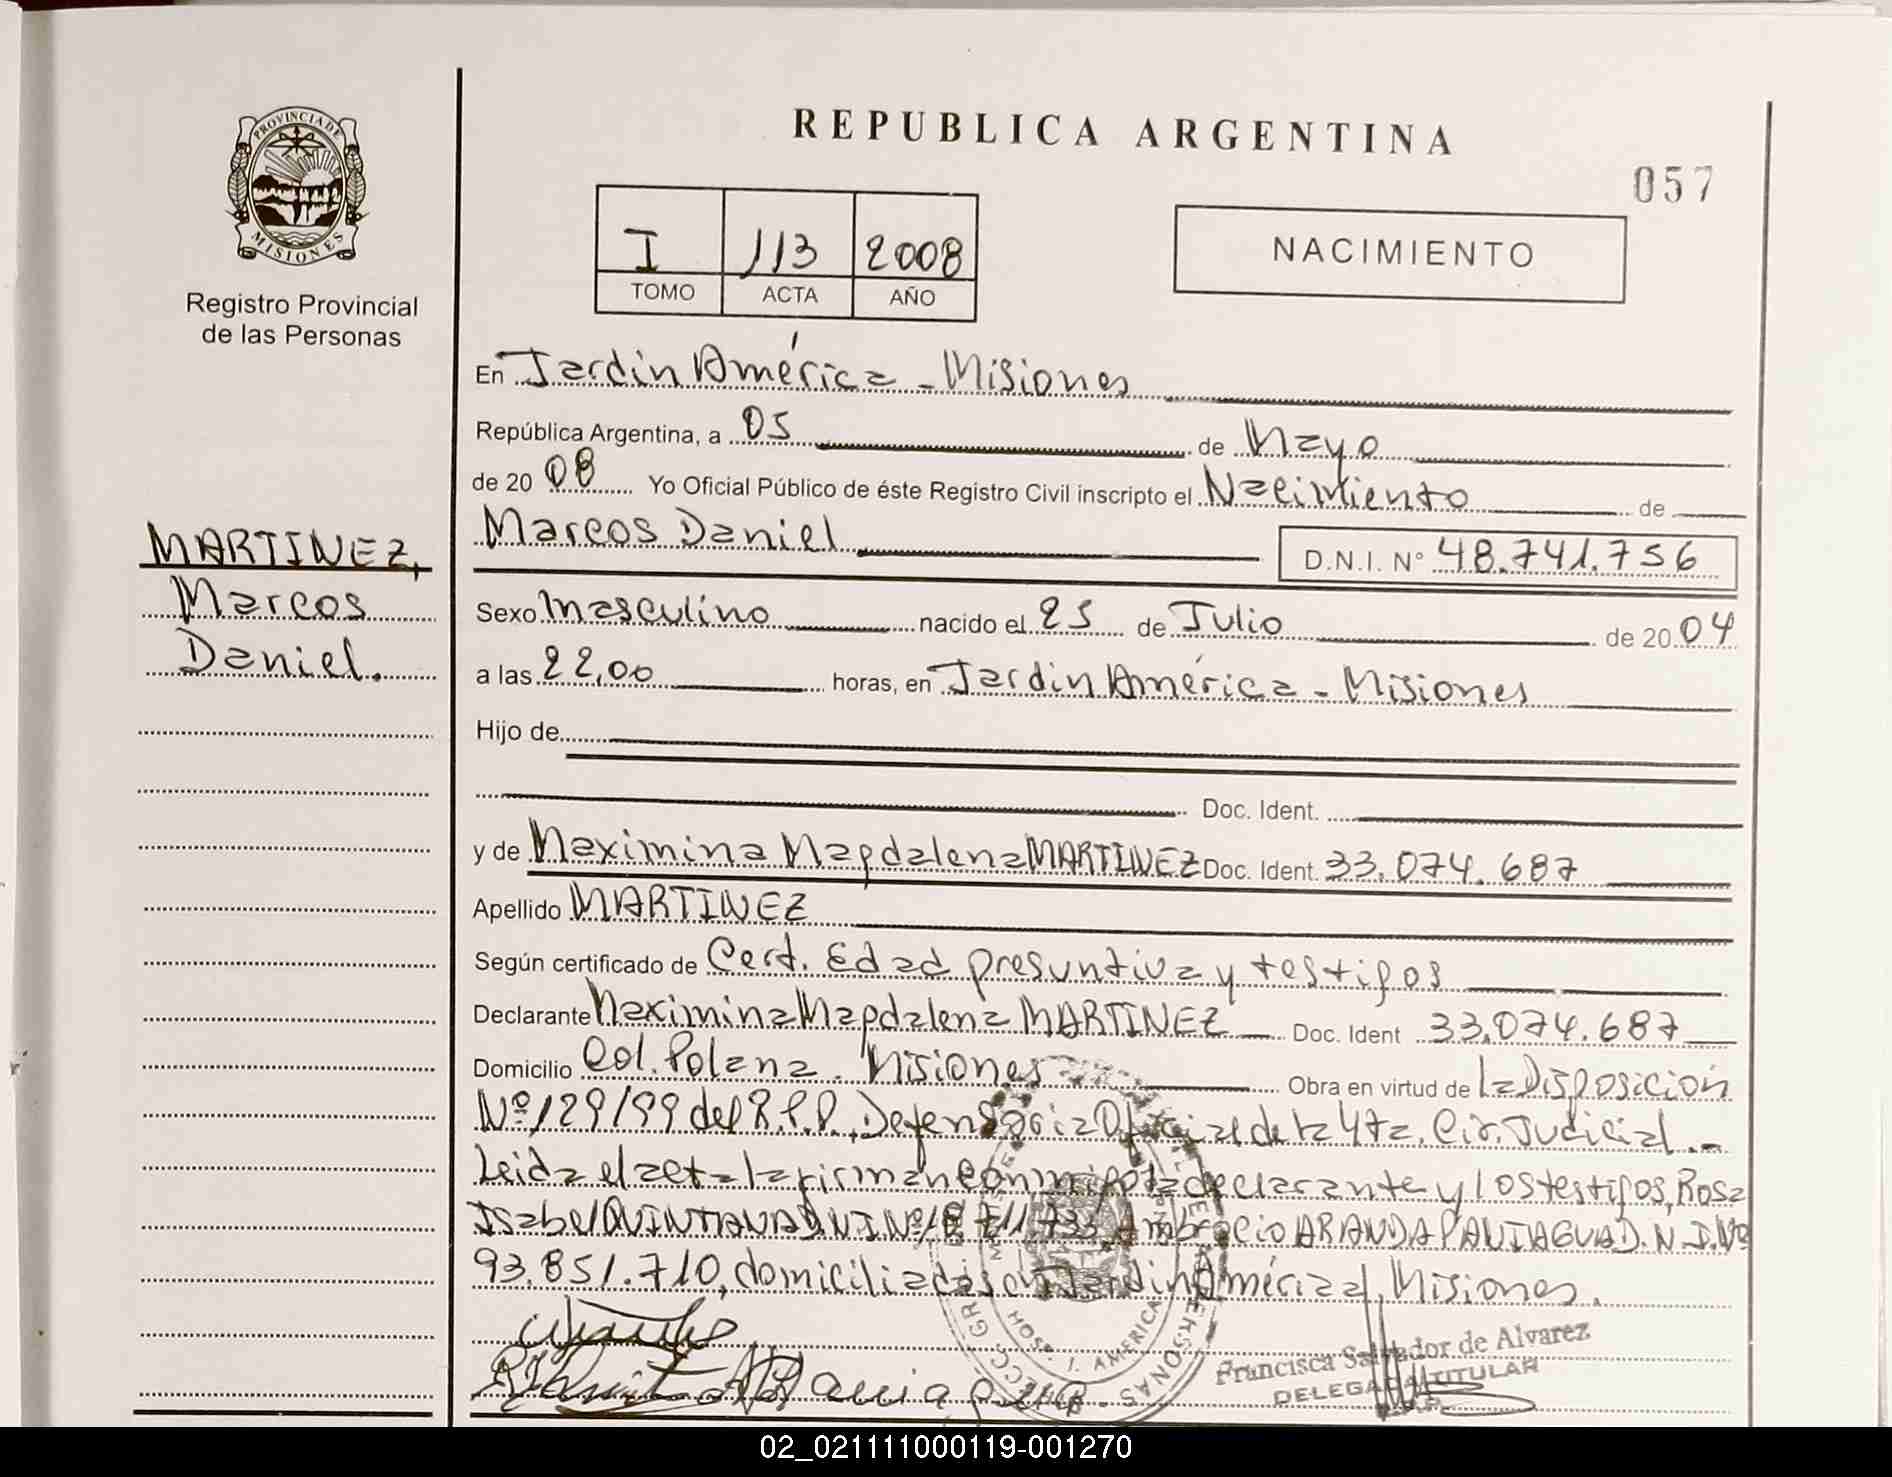 REPUBLICA ARGENTINA
057
PROVINCIA DE
MISIONES
Registro Provincial
de las Personas
I 113 2008
TOMO ACTA AÑO
NACIMIENTO
En Jardín América - Misiones
República Argentina, a 05 de Mayo
de 20 08 Yo Oficial Público de éste Registro Civil inscripto el Nacimiento de
Marcos Daniel D.N.I. Nº 48.741.756
MARTINEZ,
Marcos
Daniel.
Sexo Masculino nacido el 25 de Julio de 20 04
a las 22,00 horas, en Jardín América - Misiones
Hijo de
Doc. Ident.
y de Maximina Magdalena MARTINEZ Doc. Ident. 33.074.687
Apellido MARTINEZ
Según certificado de Cert. Edad presuntiva y testigos
Declarante Maximina Magdalena MARTINEZ Doc. Ident 33.074.687
Domicilio Col. Polana. Misiones Obra en virtud de La Disposición
Nº 129/99 del R.P.P., Defensoría Oficial de la 4ta. Cir. Judicial.-
Leida el acta la firman conmigo la declarante y los testigos, Rosa
Isabel QUINTANA D.N.I Nº 18.711.733, Ambrocio ARANDA PANIAGUA D.N.I. Nº
93.851.710, domiciliados en Jardín América, Misiones.
Francisca Salvador de Alvarez
DELEGADA TITULAR
02_021111000119-001270